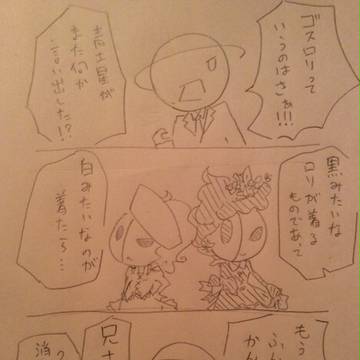 ゴスロリって
いうのはさぁ!!!
青土星が
また何か
言い出した!?
黒みたいな
ロリが着る
ものであって
白みたいなのが
着たら…
もう
ふん
兄さ
消